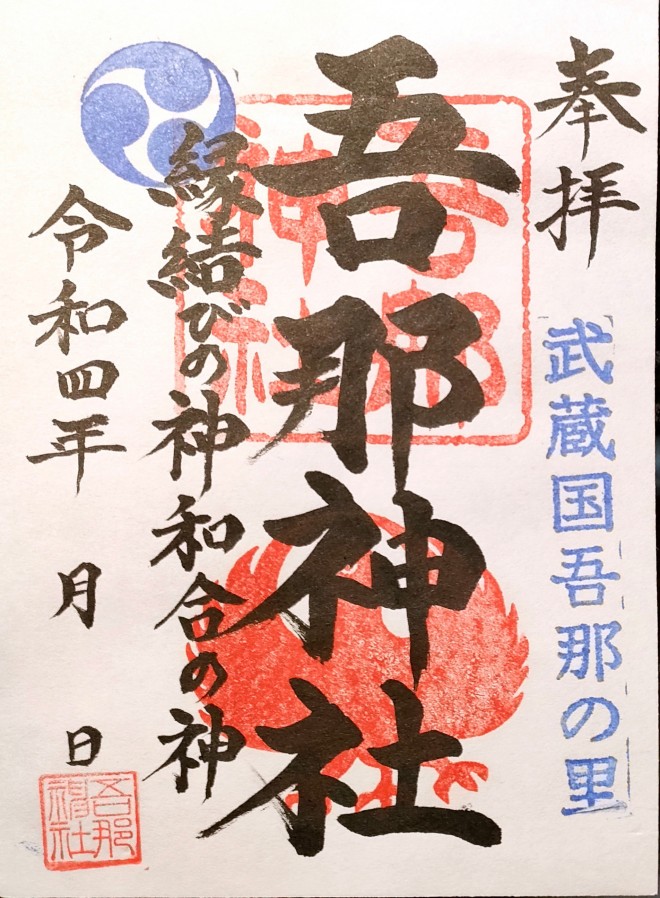 奉拝
武蔵国吾那の里
吾那神社
吾那神社
縁結びの神 和合の神
令和四年 月 日
吾那神社